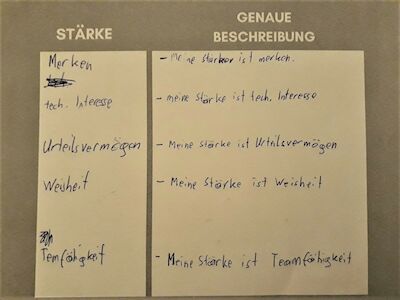 STÄRKE
GENAUE
BESCHREIBUNG
Merken
- Meine Stärker ist merken.
tech. Interesse
- meine Stärke ist tech. Interesse
Urteilsvermögen
- Meine Stärke ist Urteilsvermögen
Weisheit
- Meine Stärke ist Weisheit
Temfähigkeit
- Meine Stärke ist Teamfähigkeit